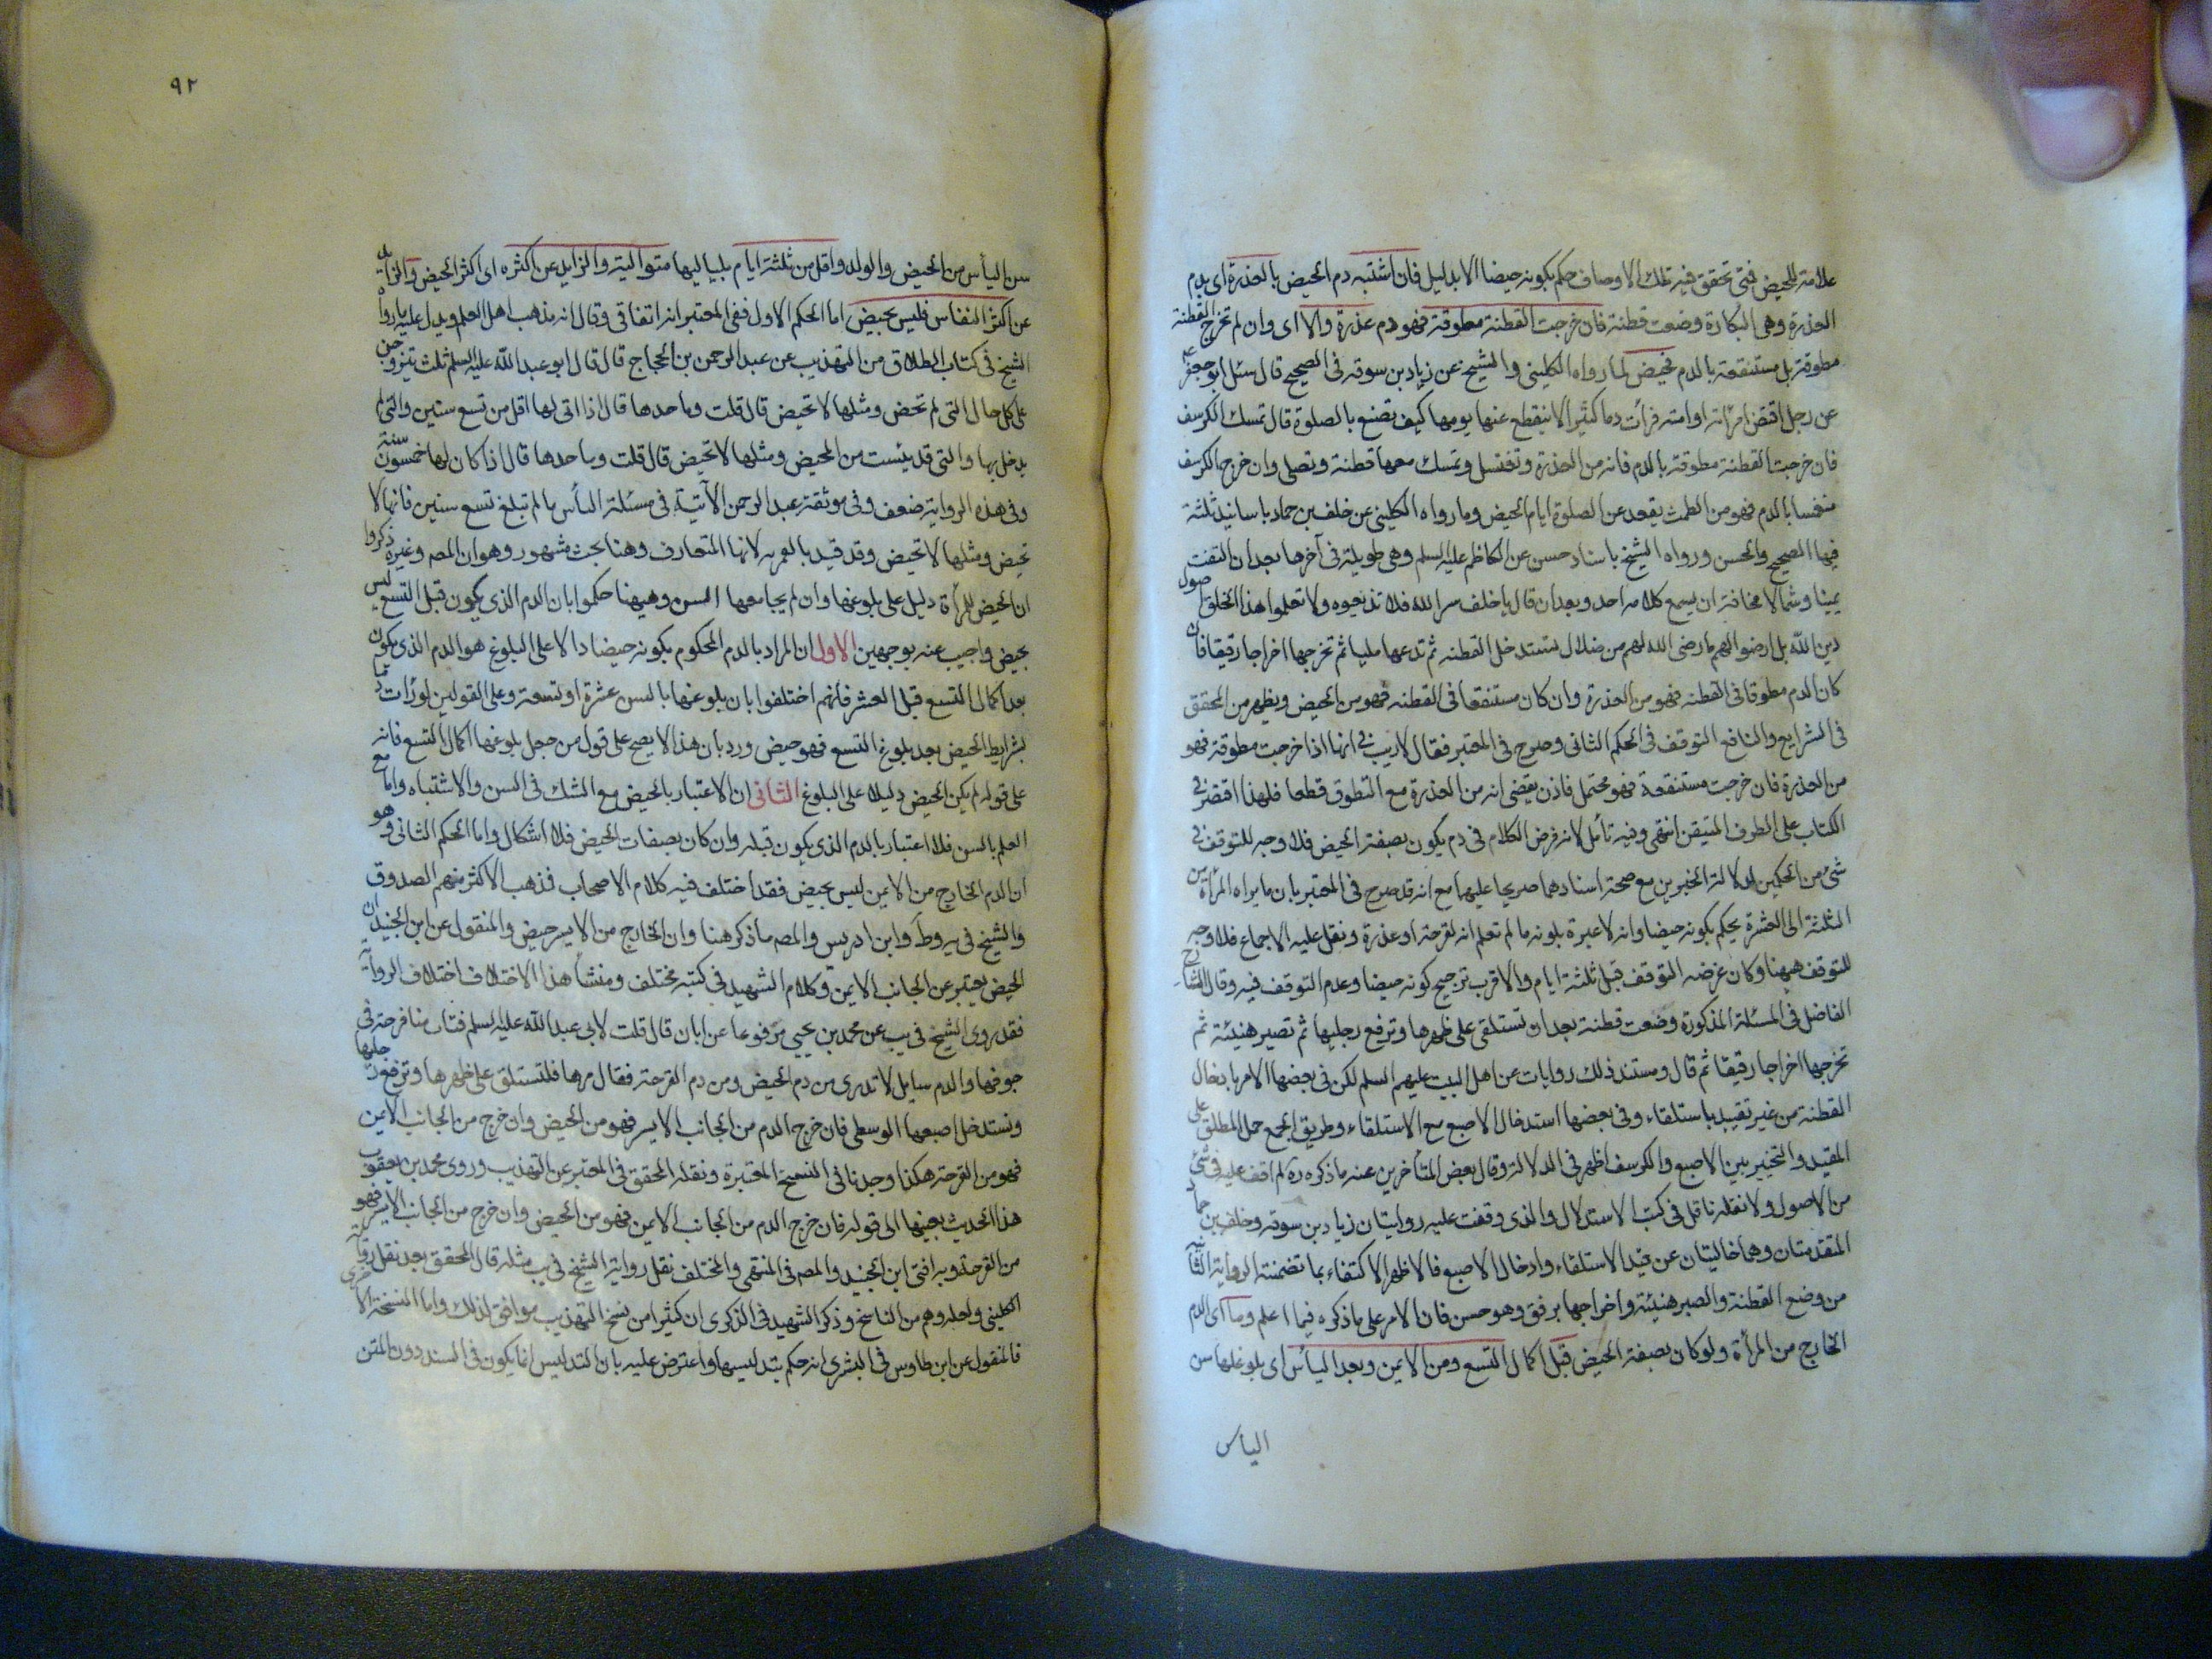 علامة للحيض فمتى تحقق فيه تلك الاوصاف حكم بكونه حيضا الا بدليل فان اشتبه دم الحيض بالعذرة اى بدم
العذرة وهى البكارة وضعت قطنة فان خرجت القطنة مطوقة فهو دم عذرة والا اى وان لم تخرج القطنة
مطوقة بل مستنقعة بالدم فحيض لما رواه الكلينى والشيخ عن زياد بن سوقه فى الصحيح قال سئل ابو جعفر ع
عن رجل اقتض امرأته او امته فرأت دما كثيرا لا ينقطع عنها يومها كيف تصنع بالصلوة قال تمسك الكرسف
فان خرجت القطنة مطوقة بالدم فانه من العذرة وتغتسل وتمسك معها قطنة وتصلى وان خرج الكرسف
منغمسا بالدم فهو من الطمث تقعد عن الصلوة ايام الحيض وما رواه الكلينى عن خلف بن حماد باسانيد ثلثة
فيها الصحيح والحسن ورواه الشيخ باسناد حسن عن الكاظم عليه السلم وهى طويلة فى آخرها بعد ان التفت
يمينا وشمالا مخافة ان يسمع كلامه احد وبعد ان قال يا خلف سر الله فلا تذيعوه ولا تعلموا هذا الخلق اصول
دين الله بل ارضوا لهم ما رضى الله لهم من ضلال تستدخل القطنه ثم تدعها مليا ثم تخرجها اخراجا رقيقا فان
كان الدم مطوقا فى القطنه فهو من العذرة وان كان مستنقعا فى القطنه فهو من الحيض ويظهر من المحقق
فى الشرايع والنافع التوقف فى الحكم الثانى وصرح فى المعتبر فقال لا ريب فى انها اذا خرجت مطوقة فهو
من العذرة فان خرجت مستنقعة فهو محتمل فاذن يقضى انه من العذرة مع التطوق قطعا فلهذا اقتصر فى
الكتاب على الطرف المتيقن انتهى وفيه تأمل لانه فرض الكلام فى دم يكون بصفة الحيض فلا وجه للتوقف فى
شئ من الحكمين لدلالة الخبرين مع صحة اسنادهما صريحا عليهما مع انه قد صرح فى المعتبر بان ما يراه المرأة من
الثلثة الى العشرة يحكم بكونه حيضا وانه لا عبرة بلونه ما لم تعلم انه لقرحة او عذرة ونقل عليه الاجماع فلا وجه
للتوقف ههنا وكان غرضه التوقف قبل ثلثة ايام والاقرب ترجيح كونه حيضا وعدم التوقف فيه وقال الشارح
الفاضل فى المسئلة المذكورة وضعت قطنة بعد ان تستلقى على ظهرها وترفع رجليها ثم تصير هنيئة ثم
تخرجها اخراجا رقيقا ثم قال ومستند ذلك روايات عن اهل البيت عليهم السلم لكن فى بعضها الامر بادخال
القطنة من غير تقييد باستلقاء وفى بعضها استدخال الاصبع مع الاستلقاء وطريق الجمع حمل المطلق على
المقيد والتخيير بين الاصبع والكرسف اظهر فى الدلالة وقال بعض المتأخرين عنه ما ذكره ره لم اقف عليه فى شئ
من الاصول ولا نقله ناقل فى كتب الاستدلال والذى وقفت عليه روايتان زياد بن سوقه وخلف بن حماد
المتقدمتان وهما خاليتان عن قيد الاستلقاء وادخال الاصبع فالاظهر الاكتفاء بما تضمنته الرواية الثانيه
من وضع القطنة والصبر هنيئة واخراجها برفق وهو حسن فان الامر على ما ذكره فيما اعلم وما اى الدم
الخارج من المرأة ولو كان بصفة الحيض قبل اكمال التسع ومن الايمن وبعد اليأس اى بلوغها سن
الياس
٩٢
سن اليأس من الحيض والولد واقل من ثلثة ايام بلياليها متوالية والزايد عن اكثره اى اكثر الحيض والزايد
عن اكثر النفاس فليس بحيض اما الحكم الاول ففى المعتبر انه اتفاقى وقال انه مذهب اهل العلم ويدل عليه ما رواه
الشيخ فى كتاب الطلاق من التهذيب عن عبد الرحمن بن الحجاج قال قال ابو عبد الله عليه السلم ثلث تتزوجن
على كل حال التى لم تحض ومثلها لا تحيض قال قلت وما حدها قال اذا اتى لها اقل من تسع سنين والتى لم
يدخل بها والتى قد يئست من المحيض ومثلها لا تحيض قال قلت وما حدها قال اذا كان لها خمسون سنة
وفى هذه الرواية ضعف وفى موثقة عبد الرحمن الآتية فى مسئلة اليأس ما لم تبلغ تسع سنين فانها لا
تحيض ومثلها لا تحيض وقد قيد بالعربيه لانها المتعارف وهنا بحث مشهور وهو ان المصـ وغيره ذكروا
ان الحيض للمرأة دليل على بلوغها وان لم يجامعها السن وههنا حكموا بان الدم الذى يكون قبل التسع ليس
بحيض واجيب عنه بوجهين الاول ان المراد بالدم المحكوم بكونه حيضا دالا على البلوغ هو الدم الذى يكون
بعد اكمال التسع قبل العشر فانهم اختلفوا بان بلوغها بالسن عشرة او تسعة وعلى القولين لو رأت دما
بشرايط الحيض بعد بلوغ التسع فهو حيض ورد بان هذا لا يصح على قول من جعل بلوغها اكمال التسع فانه
على قوله لم يكن الحيض دليلا على البلوغ الثانى ان الاعتبار بالحيض مع الشك فى السن والاشتباه واما مع
العلم بالسن فلا اعتبار بالدم الذى يكون قبله وان كان بصفات الحيض فلا اشكال واما الحكم الثانى وهو
ان الدم الخارج من الايمن ليس بحيض فقد اختلف فيه كلام الاصحاب فذهب الاكثر منهم الصدوق
والشيخ فى يه وط وابن ادريس والمصـ ما ذكر هنا وان الخارج من الايسر حيض والمنقول عن ابن الجنيد ان
الحيض يعتبر عن الجانب الايمن وكلام الشهيد فى كتبه مختلف ومنشأ هذا الاختلاف اختلاف الرواية
فقد روى الشيخ فى يب عن محمد بن يحيى مرفوعا عن ابان قال قلت لابى عبد الله عليه السلم فتاة منا قرحة فى
جوفها والدم سايل لا تدرى من دم الحيض ومن دم القرحة فقال مرها فلتستلق على ظهرها وترفع رجليها
وتستدخل اصبعها الوسطى فان خرج الدم من الجانب الايسر فهو من الحيض وان خرج من الجانب الايمن
فهو من القرحة هكذا وجدنا فى النسخ المعتبرة ونقله المحقق فى المعتبر عن التهذيب وروى محمد بن يعقوب
هذا الحديث بعينها الى قوله فان خرج الدم من الجانب الايمن فهو من الحيض وان خرج من الجانب الايسر فهو
من القرحة وبه افتى ابن الجنيد والمصـ فى المنتهى والمختلف نقل رواية الشيخ فى يب مثله قال المحقق بعد نقل رواية
الكلينى ولعله وهم من الناسخ وذكر الشهيد فى الذكرى ان كثيرا من نسخ التهذيب موافق لذلك واما النسخة الاخرى
فالمنقول عن ابن طاوس فى البشرى انه حكم بتدليسها واعترض عليه بان التدليس انما يكون فى السند دون المتن